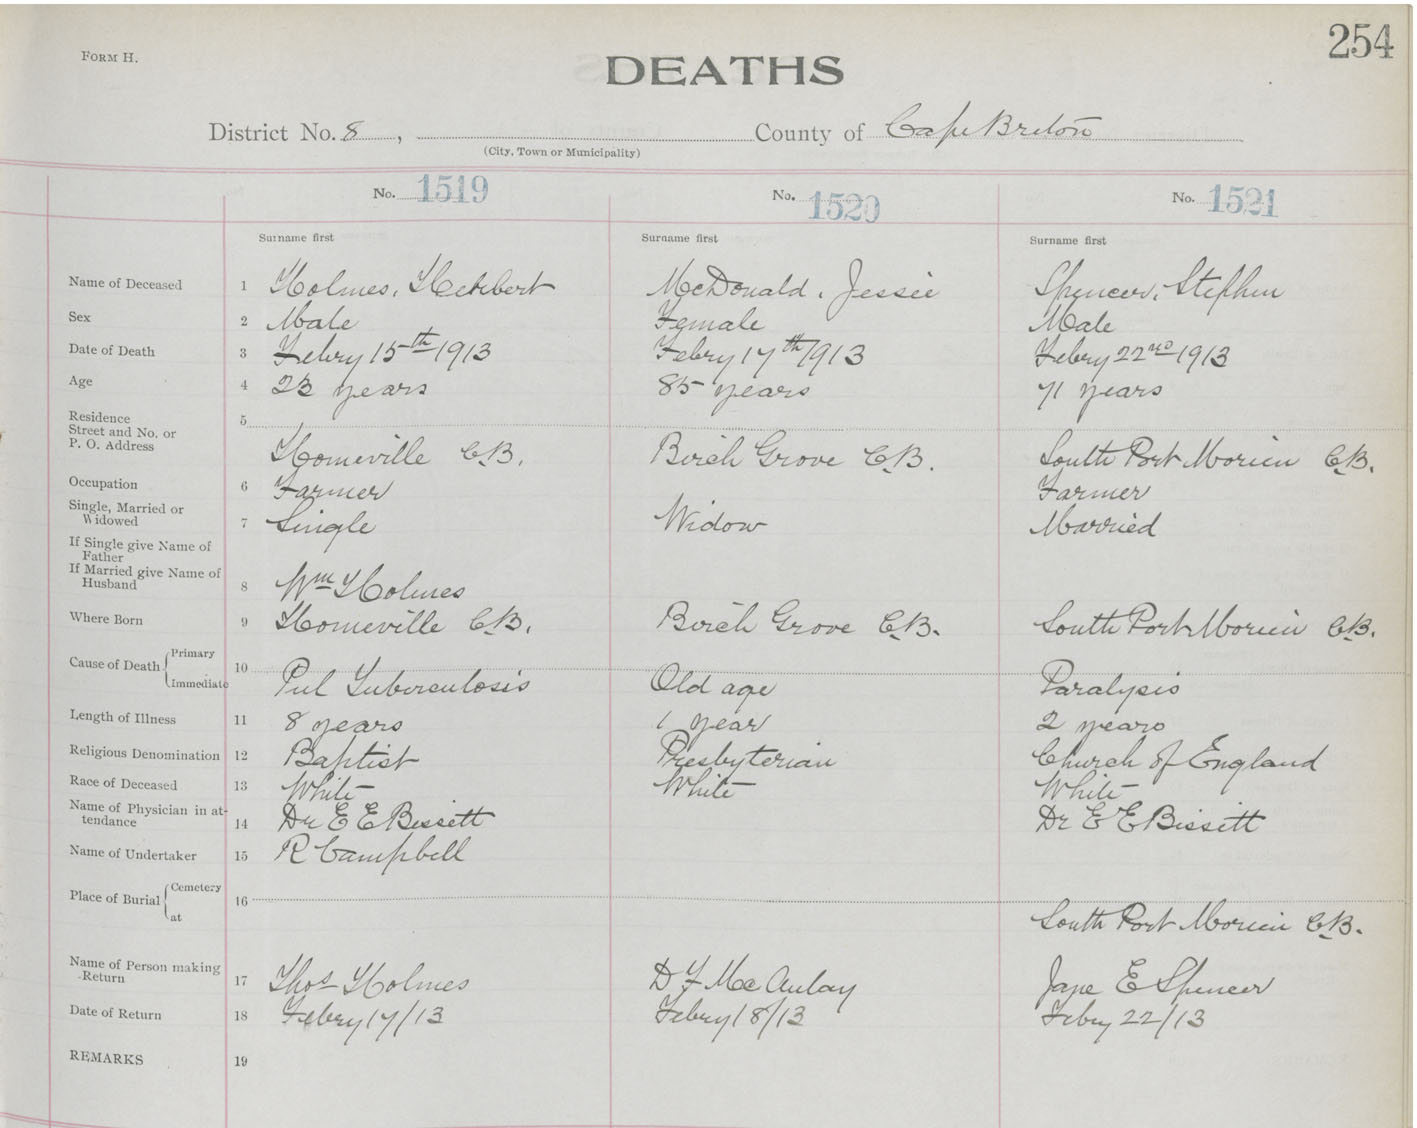 254
FORM H.
DEATHS
District No. 8, County of Cape Breton
(City, Town or Municipality)
No. 1519 No. 1520 No. 1521
Surname first Surname first Surname first
Name of Deceased 1 Holmes, Hebbert McDonald, Jessie Spencer, Stephen
Sex 2 Male Female Male
Date of Death 3 Febry 15th 1913 Febry 17th 1913 Febry 22nd 1913
Age 4 23 years 85 years 71 years
Residence 5
Street and No. or
P. O. Address Homeville C.B. Birch Grove C.B. South Port Morien C.B.
Occupation 6 Farmer Farmer
Single, Married or
Widowed 7 Single Widow Married
If Single give Name of
Father
If Married give Name of
Husband 8 Wm Holmes
Where Born 9 Homeville C.B. Birch Grove C.B. South Port Morien C.B.
Primary
Cause of Death 10
Immediate Pul Tuberculosis Old age Paralysis
Length of Illness 11 8 years 1 year 2 years
Religious Denomination 12 Baptist Presbyterian Church of England
Race of Deceased 13 White White White
Name of Physician in at-
tendance 14 Dr E E Bissett Dr E E Bissett
Name of Undertaker 15 R Campbell
Cemetery
Place of Burial 16
at South Port Morien C.B.
Name of Person making
Return 17 Thos Holmes D F McAulay Jane E Spencer
Date of Return 18 Febry 17/13 Febry 18/13 Feby 22/13
REMARKS 19